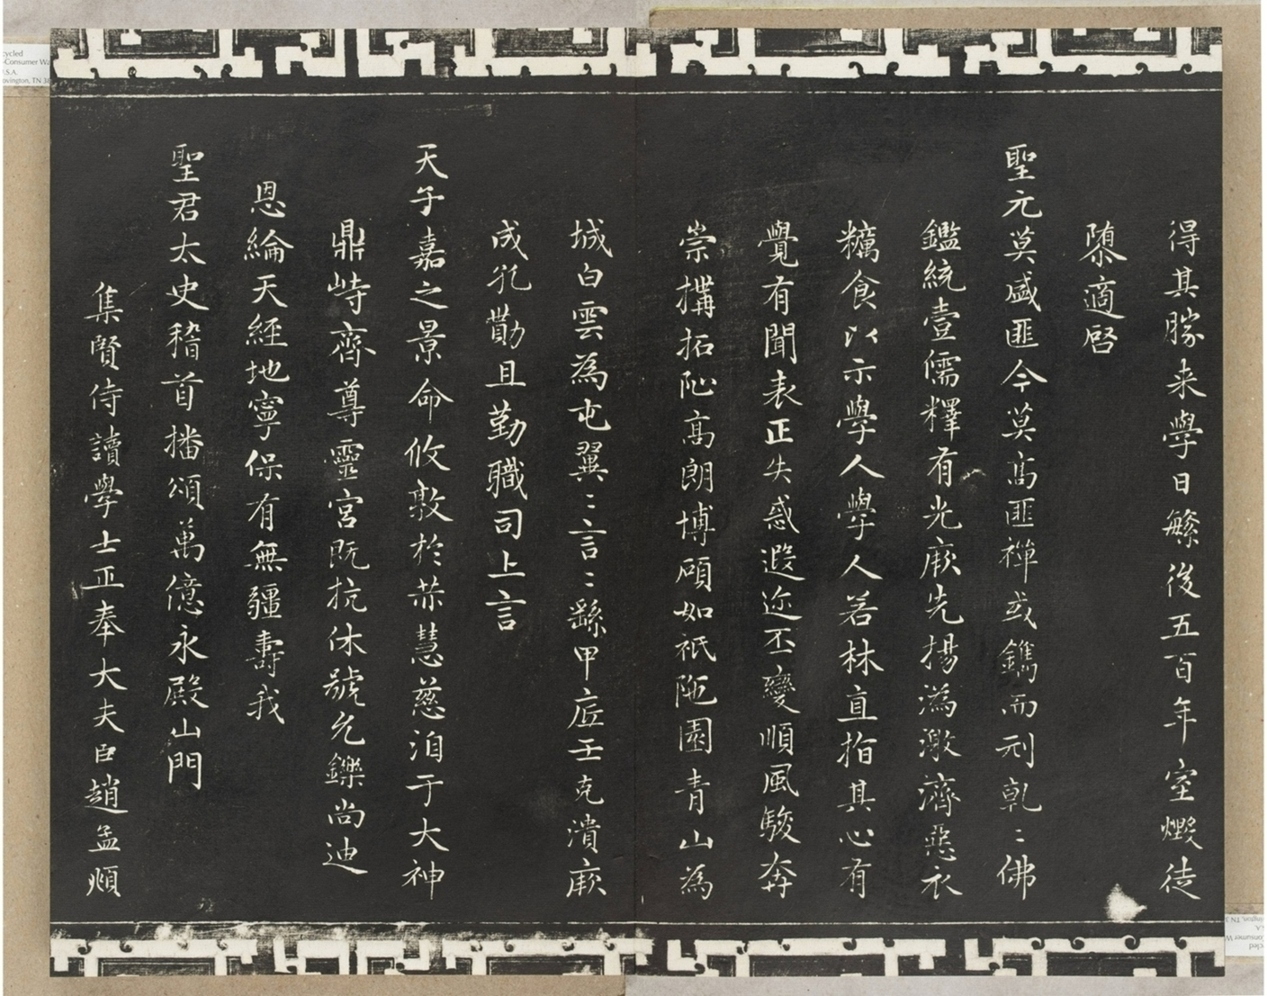 得其勝來學日繁後五百年室燬徒
隳適啓
聖元莫盛匪今莫高匪禪或鐫而刓孰〻佛
鑑統壹儒釋有光厥先揚溈激濟惡衣
糲食以示學人學人若林直指其心有
覺有聞表正失惑遐迩丕變順風駿奔
崇搆拓阯高朗博碩如祇陁園青山為
城白雲為屯翼〻言〻繇甲底壬克潰厥
成孔勩且勤職司上言
天子嘉之景命攸敷於赫慧慈洎于大神
鼎峙齊尊靈宮既抗休號允鑠尚迪
恩綸天經地寧保有無疆壽我
聖君太史稽首播頌萬億永殿山門
集賢侍讀學士正奉大夫臣趙孟頫
cycled
-Consumer Wa
U.S.A.
ovington, TN